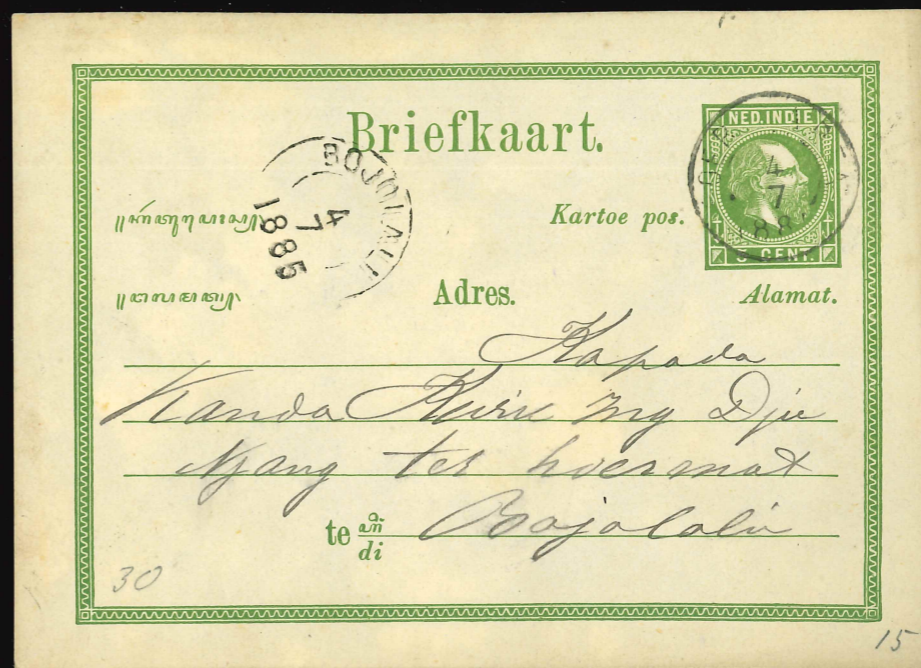 Briefkaart.
NED.INDIE
4
7
5 CENT.
BOJOLALI
4
7
1885
Kartoe pos.
Adres.
Alamat.
Kapada
Kanda Kwik Ing Djie
njang ter hoermat
te
di Bojolali
30
15